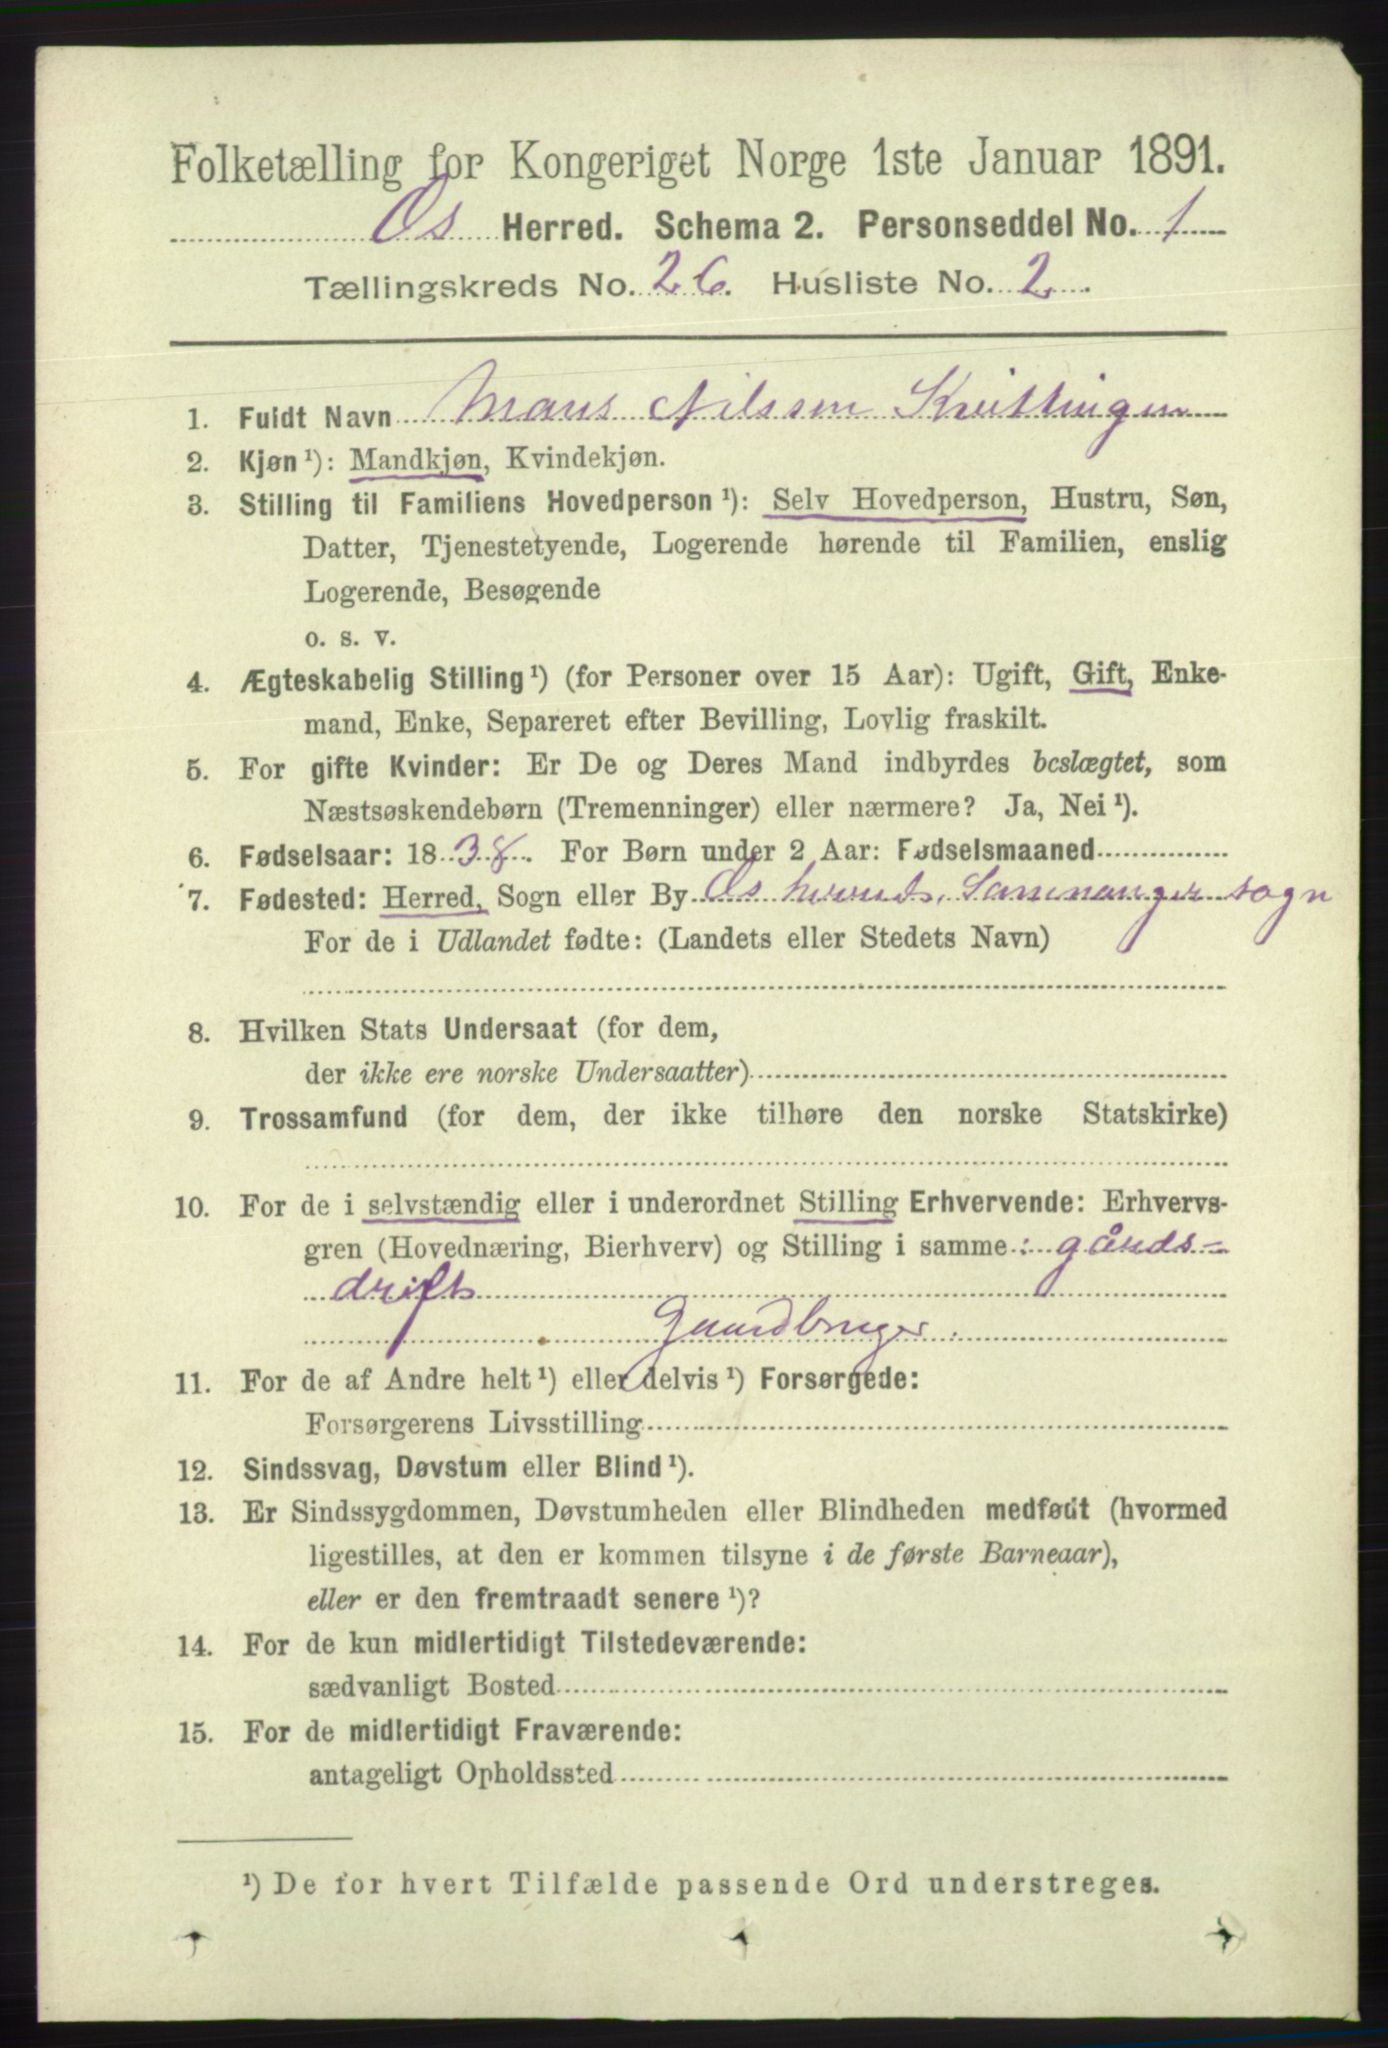 Folketælling for Kongeriget Norge 1ste Januar 1891.
Os Herred. Schema 2. Personseddel No. 1
Tællingskreds No. 26. Husliste No. 2.
1. Fuldt Navn Mons Nilssen Kvittingen
2. Kjøn ¹): Mandkjøn, Kvindekjøn.
3. Stilling til Familiens Hovedperson ¹): Selv Hovedperson, Hustru, Søn,
Datter, Tjenestetyende, Logerende hørende til Familien, enslig
Logerende, Besøgende
o. s. v.
4. Ægteskabelig Stilling ¹) (for Personer over 15 Aar): Ugift, Gift, Enke-
mand, Enke, Separeret efter Bevilling, Lovlig fraskilt.
5. For gifte Kvinder: Er De og Deres Mand indbyrdes beslægtet, som
Næstsøskendebørn (Tremenninger) eller nærmere? Ja, Nei ¹).
6. Fødselsaar: 1838. For Børn under 2 Aar: Fødselsmaaned
7. Fødested: Herred, Sogn eller By Os herred, Samnanger sogn
For de i Udlandet fødte: (Landets eller Stedets Navn)
8. Hvilken Stats Undersaat (for dem,
der ikke ere norske Undersaatter)
9. Trossamfund (for dem, der ikke tilhøre den norske Statskirke)
10. For de i selvstændig eller i underordnet Stilling Erhvervende: Erhvervs-
gren (Hovednæring, Bierhverv) og Stilling i samme: gårds-
drift
Gaardbruger.
11. For de af Andre helt ¹) eller delvis ¹) Forsørgede:
Forsørgerens Livsstilling
12. Sindssvag, Døvstum eller Blind ¹).
13. Er Sindssygdommen, Døvstumheden eller Blindheden medfødt (hvormed
ligestilles, at den er kommen tilsyne i de første Barneaar),
eller er den fremtraadt senere ¹)?
14. For de kun midlertidigt Tilstedeværende:
sædvanligt Bosted
15. For de midlertidigt Fraværende:
antageligt Opholdssted
¹) De for hvert Tilfælde passende Ord understreges.